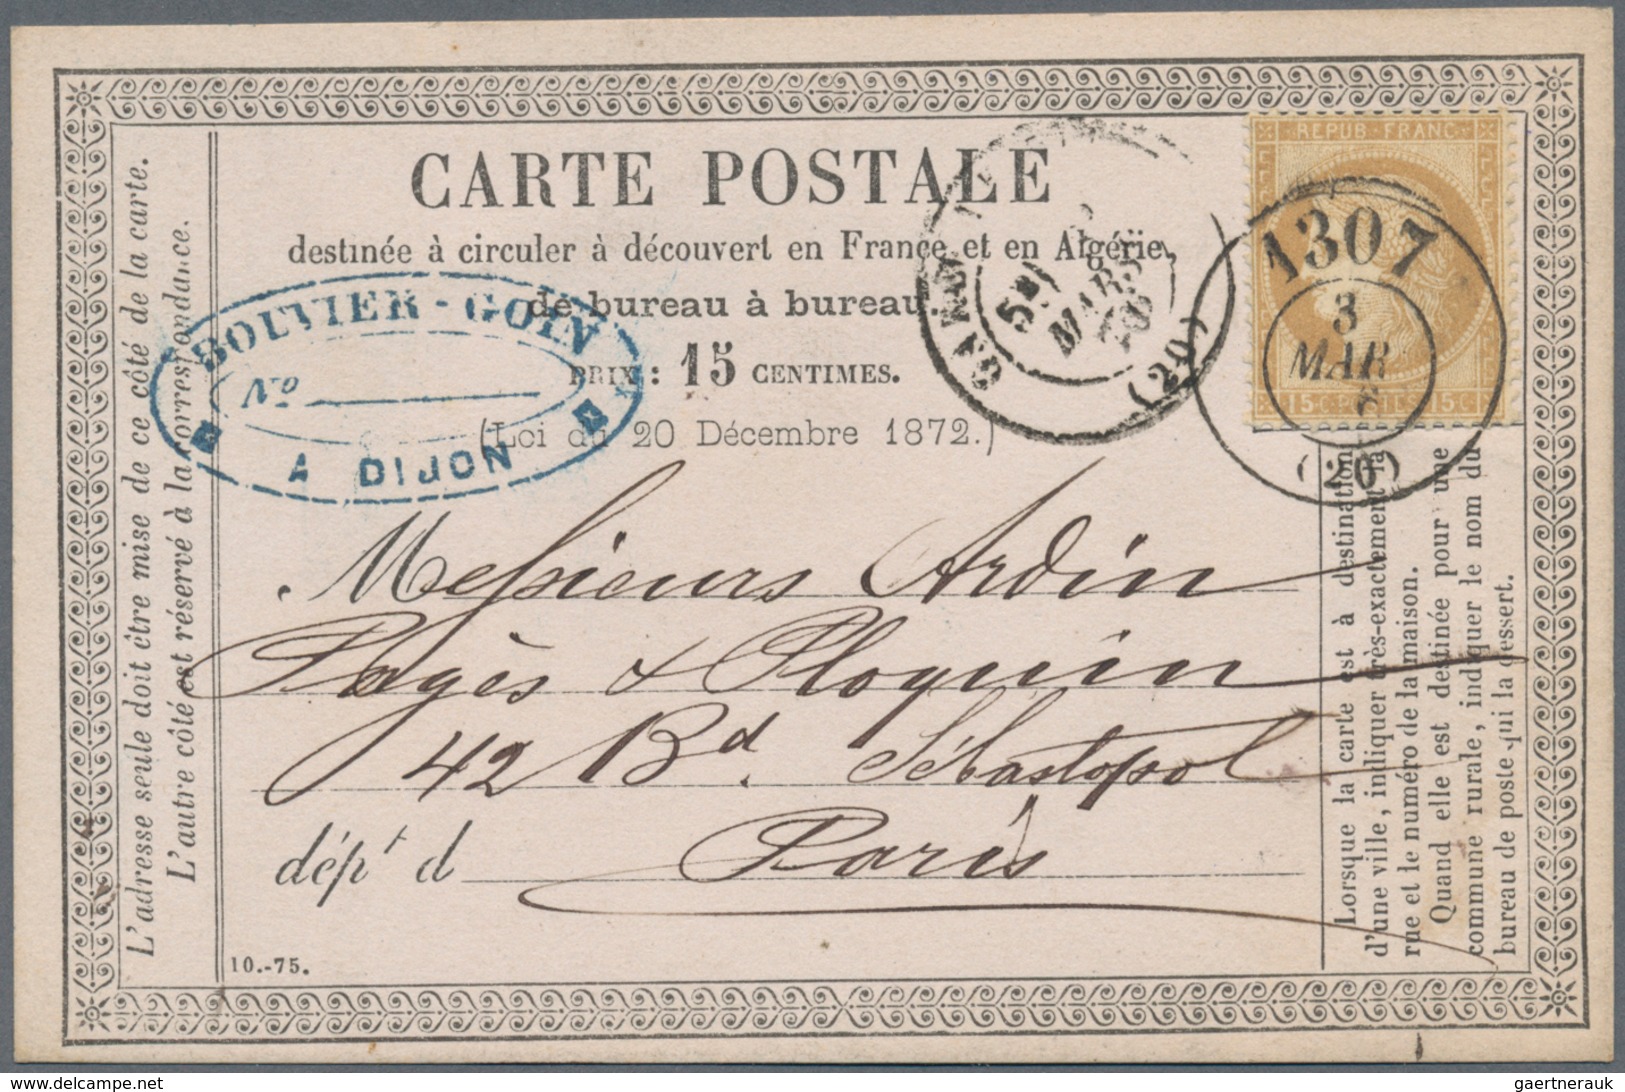 CARTE POSTALE
destinée à circuler à découvert en France et en Algérie,
de bureau à bureau.
PRIX: 15 CENTIMES.
(Loi du 20 Décembre 1872.)
BOUVIER-GOIN
No
A DIJON
REPUB·FRANC
15c POSTES 15c
5E
MARS
76
(20)
1307
3
MAR
(20)
Messieurs Ardin
Pagès & Ploquin
42 Bd. Sébastopol
dépt d Paris
10.-75.
L'adresse seule doit être mise de ce côté de la carte.
L'autre côté est réservé à la correspondance.
Lorsque la carte est à destination
d'une ville, indiquer très-exactement la
rue et le numéro de la maison.
Quand elle est destinée pour une
commune rurale, indiquer le nom du
bureau de poste qui la dessert.
All-in-one.de
gaertnerauk